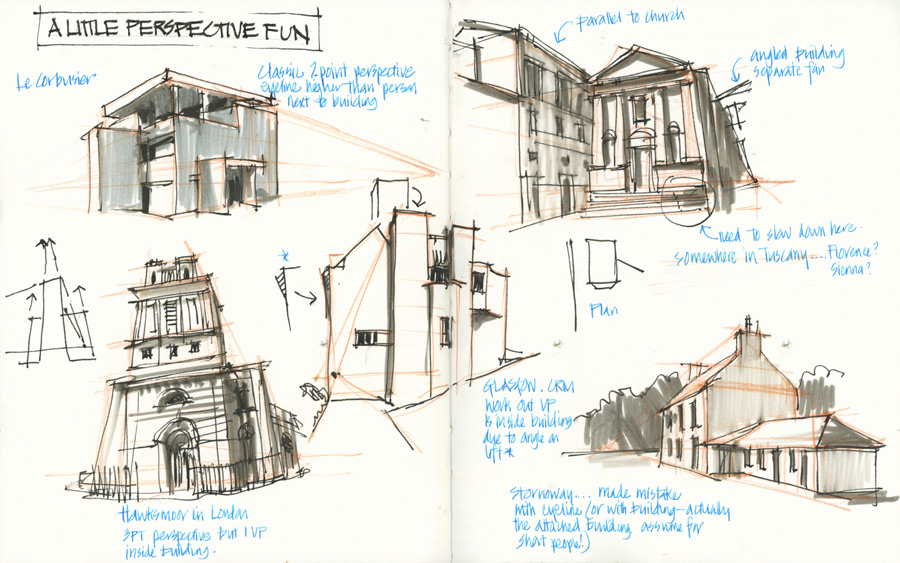 A LITTLE PERSPECTIVE FUN
Le Corbusier
Classic 2 point perspective
eyeline higher than person
next to building
parallel to church
angled building
separate fan
need to slow down here.
somewhere in Tuscany.... Florence?
Sienna?
*
Plan
GLASGOW. CRM
Work out VP
is inside building
due to angle on
left *
Hawksmoor in London
3PT perspective but 1 VP
inside building.
Stornoway.... made mistake
with eyeline (or with building - actually
the attached building assume for
short people!)